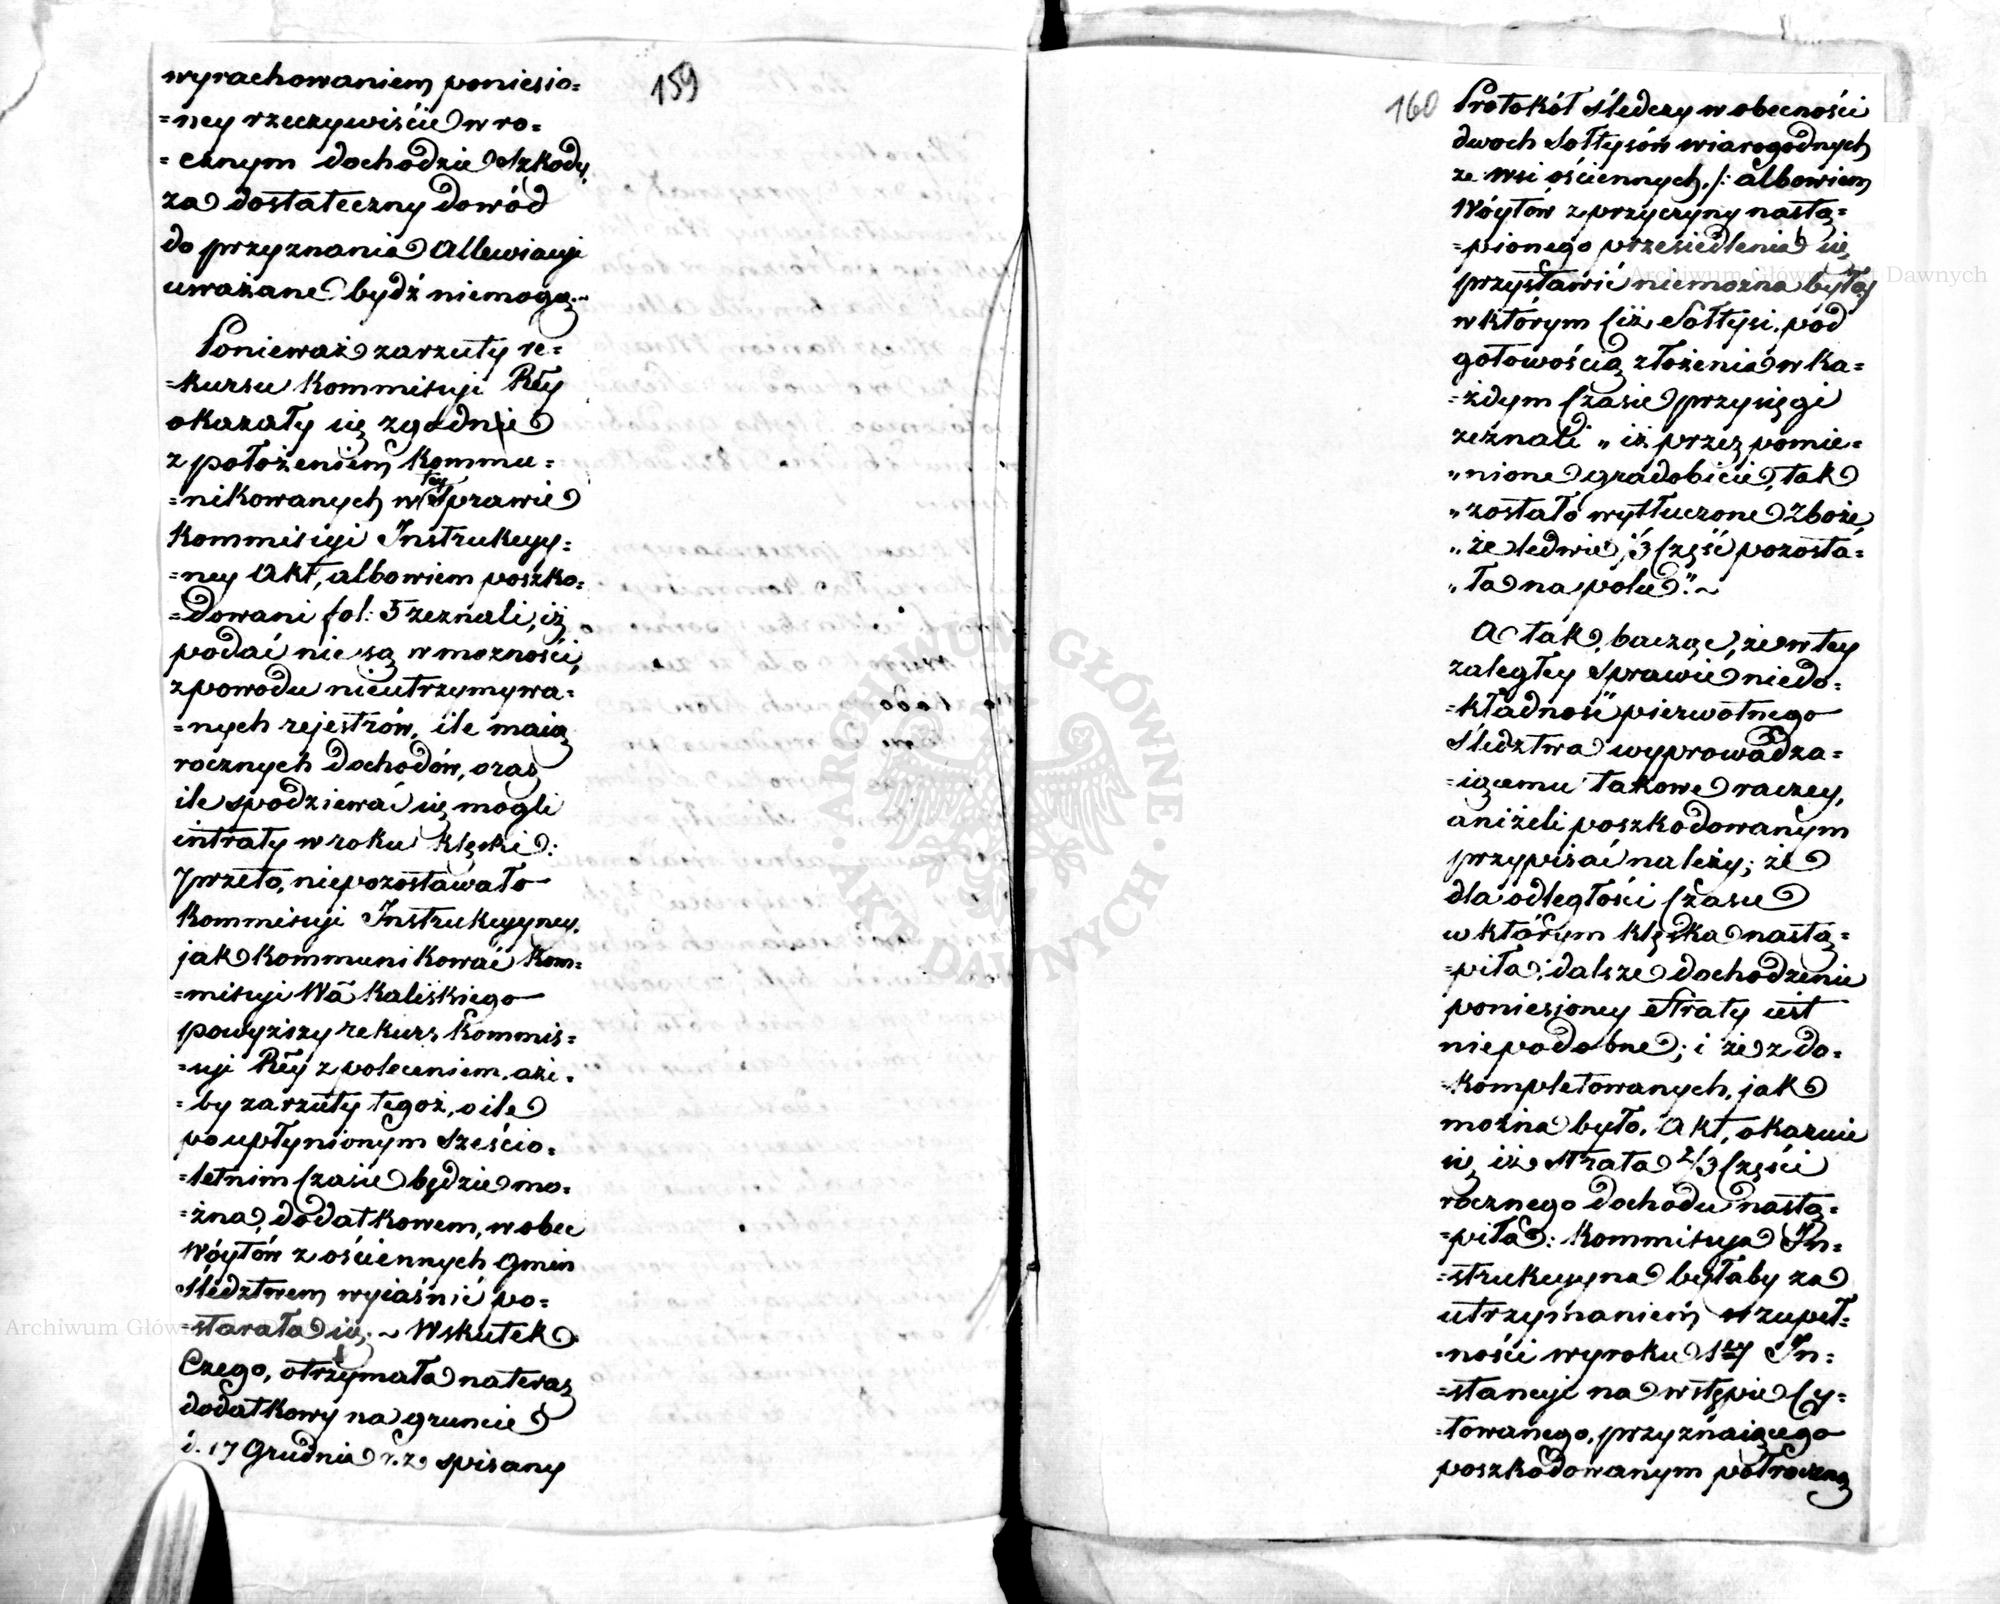 159
wyrachowaniem poniesio=
=ney rzeczywiście w ro=
=cznym dochodzie Szkody,
za dostateczny dowód
do przyznania Allewiacyi
uważane bydź niemogą.~
Ponieważ zarzuty re=
=kursu Kommissyi Rły
okazały się zgodnie
z położeniem kommu=
=nikowanych w tey Sprawie
Kommissyi Instrukcyy=
=ney Akt, albowiem poszko=
=dowani fol: 5 zeznali, iż
podać nie są w możności,
z powodu nieutrzymywa=
=nych rejestrów, ile maią
rocznych dochodów, oraz
ile spodziewać się mogli
intraty w roku klęski:
przeto, niepozostawało
Kommissyi Instrukcyyney,
jak kommunikować Kom=
=missyi Wa Kaliskiego
powyższy rekurs Kommis=
=syi Rły z poleceniem, aże=
=by zarzuty tegoż, o ile
po upłynionym sześcio=
=letnim czasie będzie mo=
=żna, dodatkowem, w obec
Wóytów z ościennych Gmin
Śledztwem wyiaśnić po=
=starała się. ~ Wskutek
czego, otrzymała na teraz
dodatkowy na gruncie
d. 17 Grudnia r. z. spisany
160
Protokół śledczy w obecności
dwoch Sołtysów wiarogodnych
ze wsi ościennych, /: albowiem
Wóytów z przyczyny nastą=
=pionego przesiedlenia się,
przystawić niemożna było:/
w którym ciż Sołtysi, pod
gotowością złożenia w ka=
=żdym czasie przysięgi
zeznali „ iż przez pomie=
„nione gradobicie, tak
„zostało wytłuczone zboże,
„że ledwie ⅓ część pozosta=
„ła na polu". ~
A tak, bacząc, że w tey
zaległey sprawie niedo=
=kładność pierwotnego
Śledztwa wyprowadza=
=iącemu takowe raczey,
aniżeli poszkodowanym
przypisać należy; że
dla odległości czasu
w którym klęska nastą=
=piła, dalsze dochodzenie
poniesioney Straty iest
niepodobne; i że z do=
=kompletowanych, jak
można było, Akt, okazuie
się iż strata 2/3 części
rocznego dochodu nastą=
=piła: Kommissya In=
=strukcyyna byłaby za
utrzymaniem w zupeł=
=ności wyroku 1ey In=
=stancyi na wstępie cy=
=towanego, przyznaiącego
poszkodowanym półroczną
ARCHIWUM GŁÓWNE AKT DAWNYCH